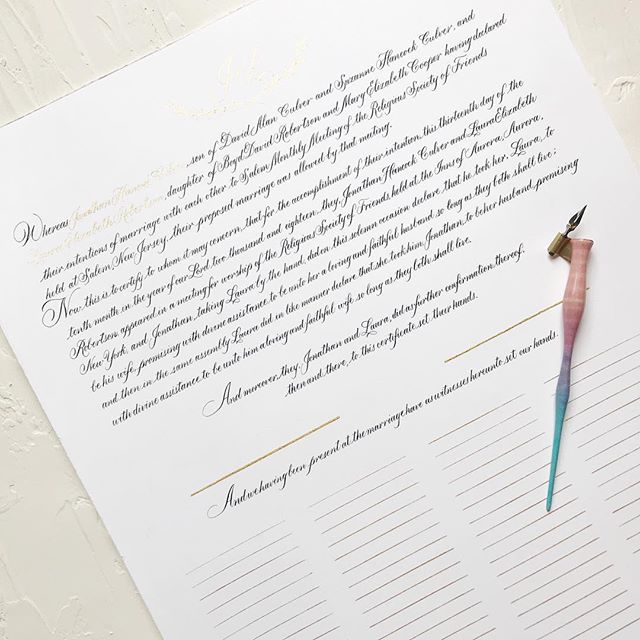 Whereas Jonathan Hancock Culver, son of David Alan Culver and Suzanne Hancock Culver, and
Laura Elizabeth Robertson, daughter of Boyd David Robertson and Mary Elizabeth Cooper having declared
their intentions of marriage with each other to Salem Monthly Meeting of the Religious Society of Friends
held at Salem, New Jersey, their proposed marriage was allowed by that meeting.
Now, this is to certify to whom it may concern, that for the accomplishment of their intention, this thirteenth day of the
tenth month in the year of our Lord, two thousand and eighteen, they, Jonathan Hancock Culver and Laura Elizabeth
Robertson, appeared in a meeting for worship of the Religious Society of Friends held at the Inns of Aurora, Aurora,
New York, and Jonathan, taking Laura by the hand, did on this solemn occasion declare, that he took her, Laura, to
be his wife, promising with divine assistance to be unto her a loving and faithful husband so long as they both shall live;
and then, in the same assembly Laura did in like manner declare that she took him, Jonathan, to be her husband, promising
with divine assistance to be unto him a loving and faithful wife so long as they both shall live.
And moreover, they, Jonathan and Laura, did as further confirmation thereof,
then and there, to this certificate set their hands.
And we having been present at the marriage have as witnesses hereunto set our hands.